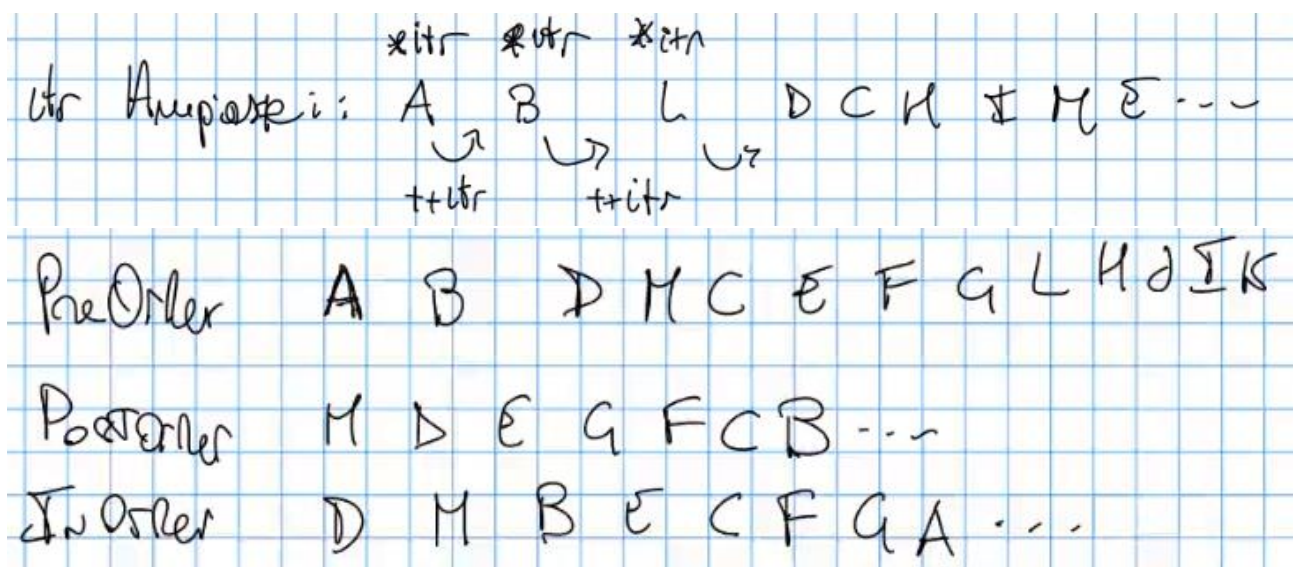 *itr *itr *itr
itr A B L D C H I M E ...
++itr ++itr
PreOrder A B D M C E F G L H J I K
PostOrder M D E G F C B ...
InOrder D M B E C F G A ...